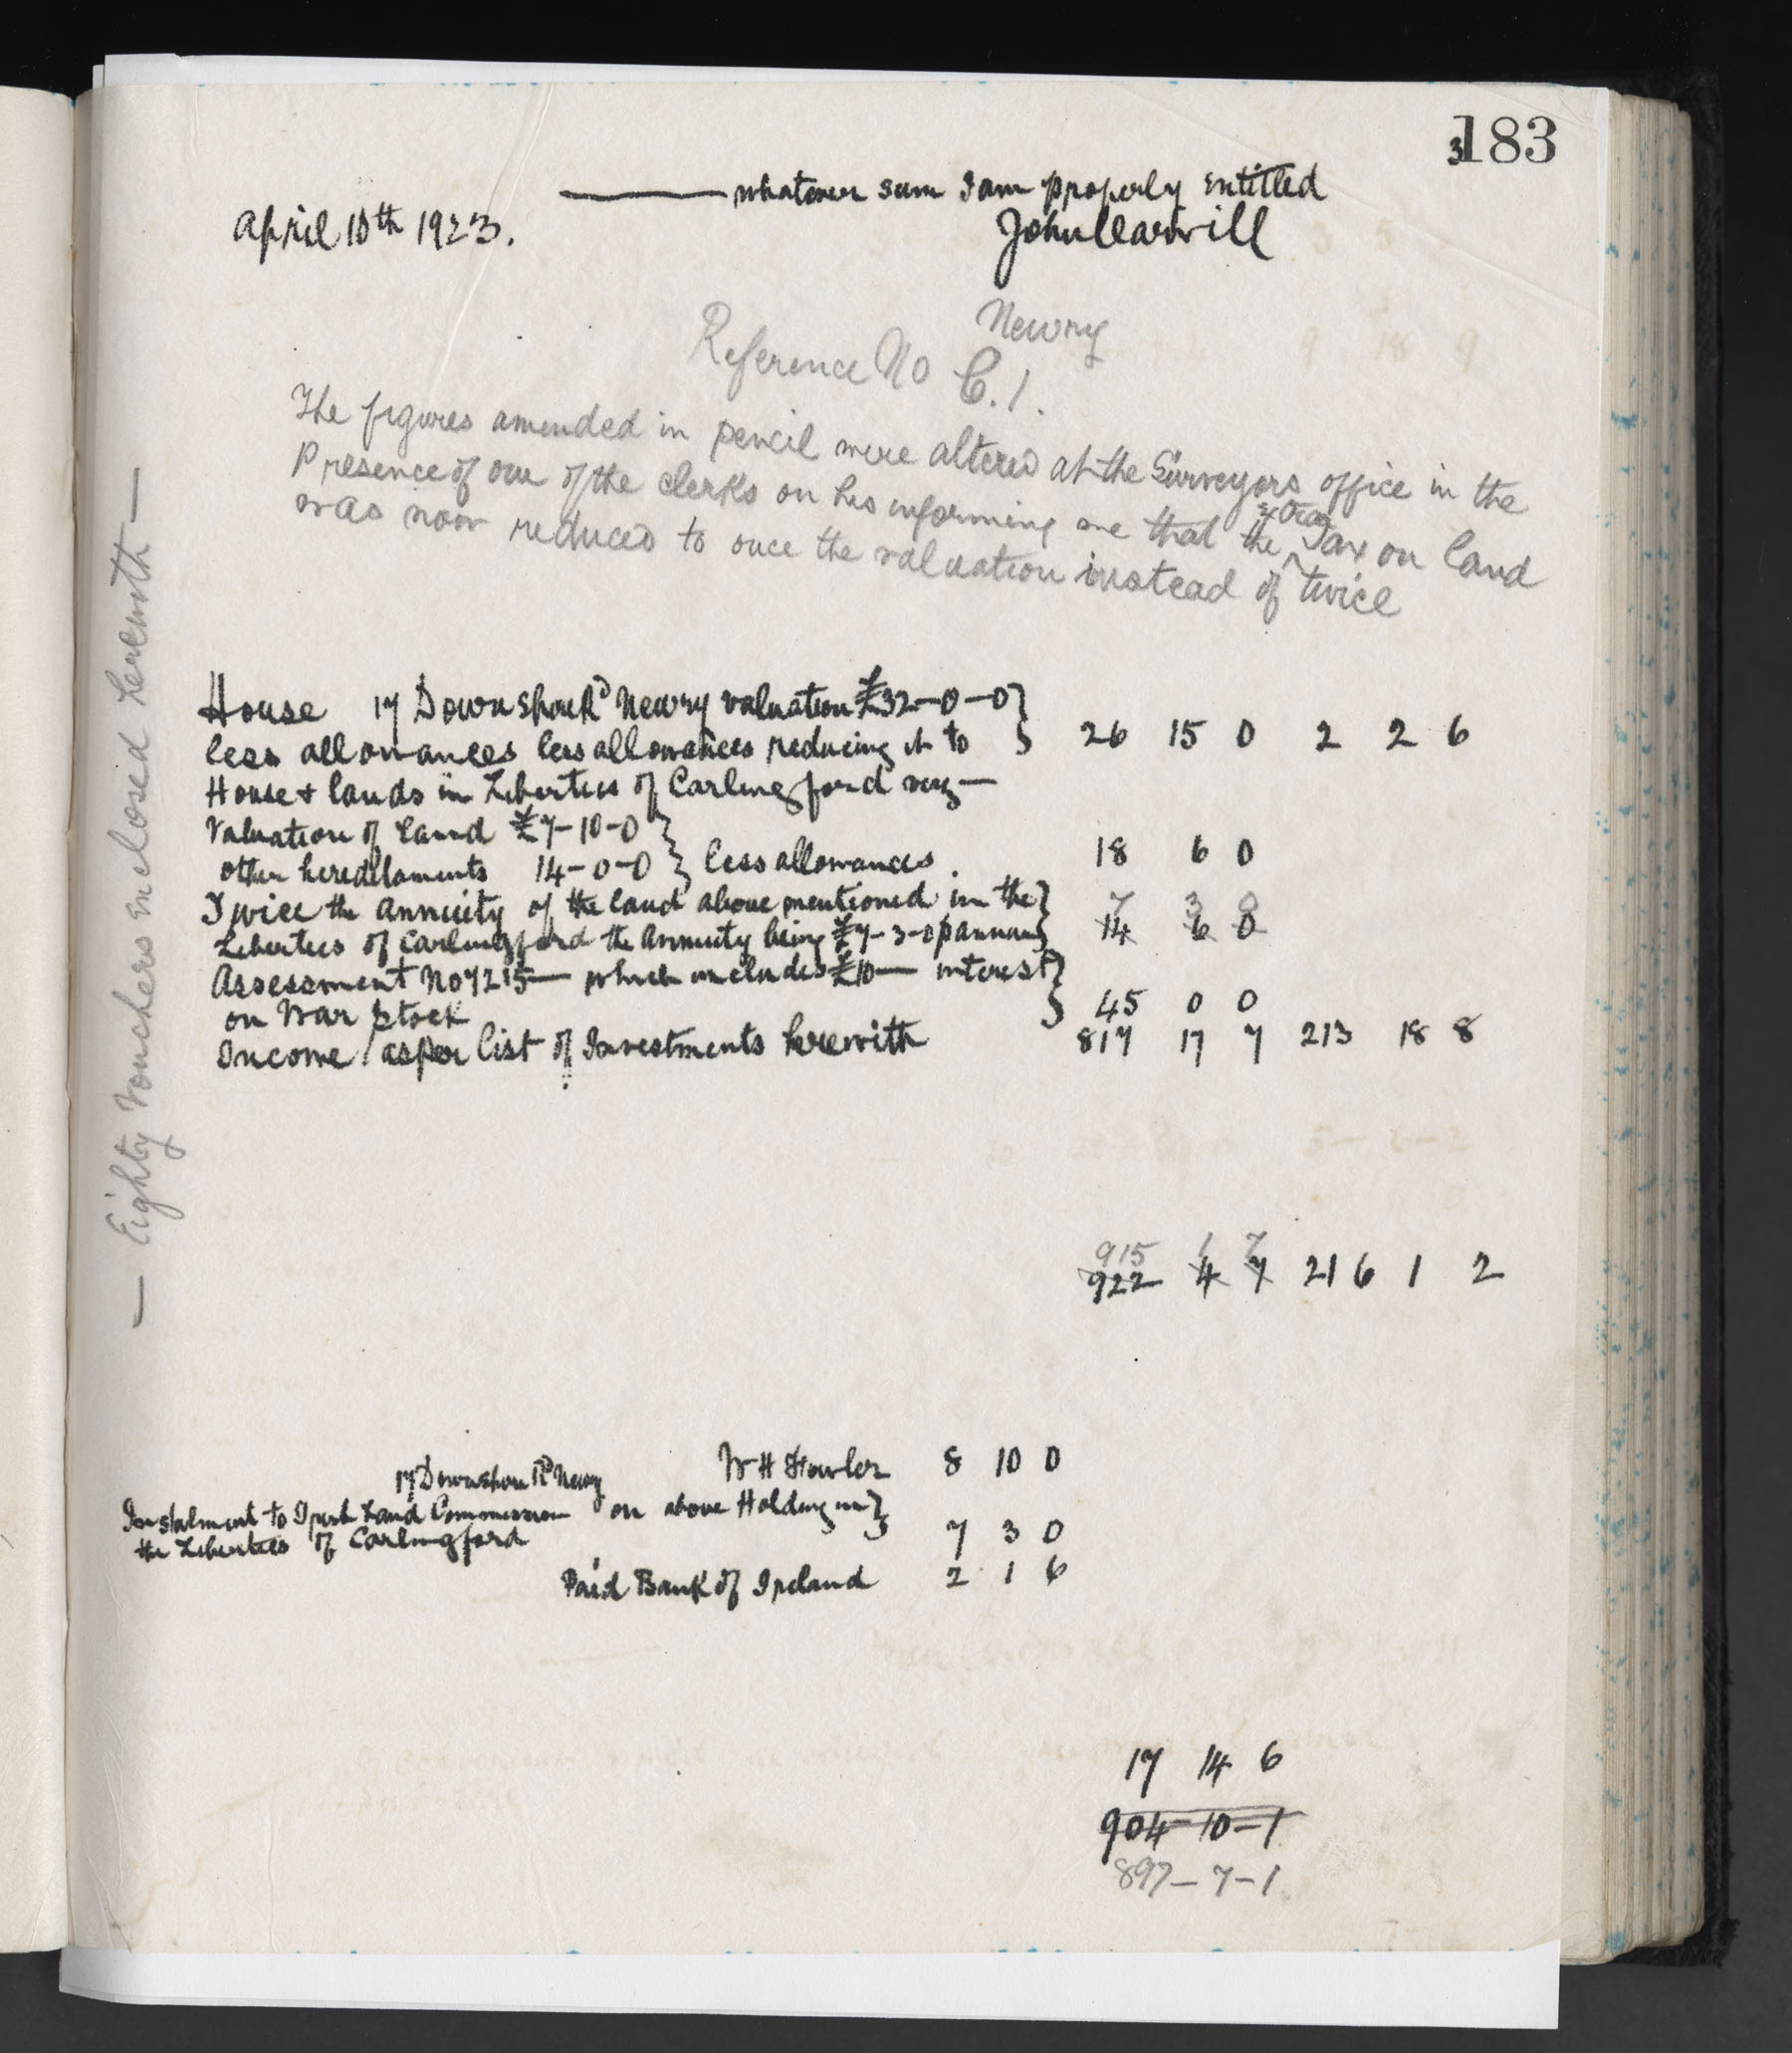 3183
——— whatever sum I am properly entitled
April 10th 1923.
John Carvill
Newry
Reference No C.1.
The figures amended in pencil were altered at the Surveyors office in the
Presence of one of the clerks on his informing me that the extra Tax on land
was now reduced to once the valuation instead of twice
— Eighty Vouchers enclosed herewith —
House 17 Downshire Rd Newry valuation £32-0-0 }
less allowances less allowances reducing it to } 26 15 0 2 2 6
House & lands in Liberties of Carlingford viz —
Valuation of Land £7-10-0 }
other hereditaments 14-0-0 } less allowances. 18 6 0
7 3 0
Twice the annuity of the land above mentioned in the }
Liberties of Carlingford the Annuity being £7-3-0 p annum } 14 6 0
Assessment No 7215 — which includes £10 — interest }
on War Stock } 45 0 0
Income as per list of Investments herewith 817 17 7 213 18 8
915 1 7
922 4 7 216 1 2
W H Fowler 8 10 0
17 Downshire Rd Newry
Instalment to Irish Land Commission on above Holding in }
the Liberties of Carlingford } 7 3 0
Paid Bank of Ireland 2 1 6
17 14 6
904-10-1
897-7-1